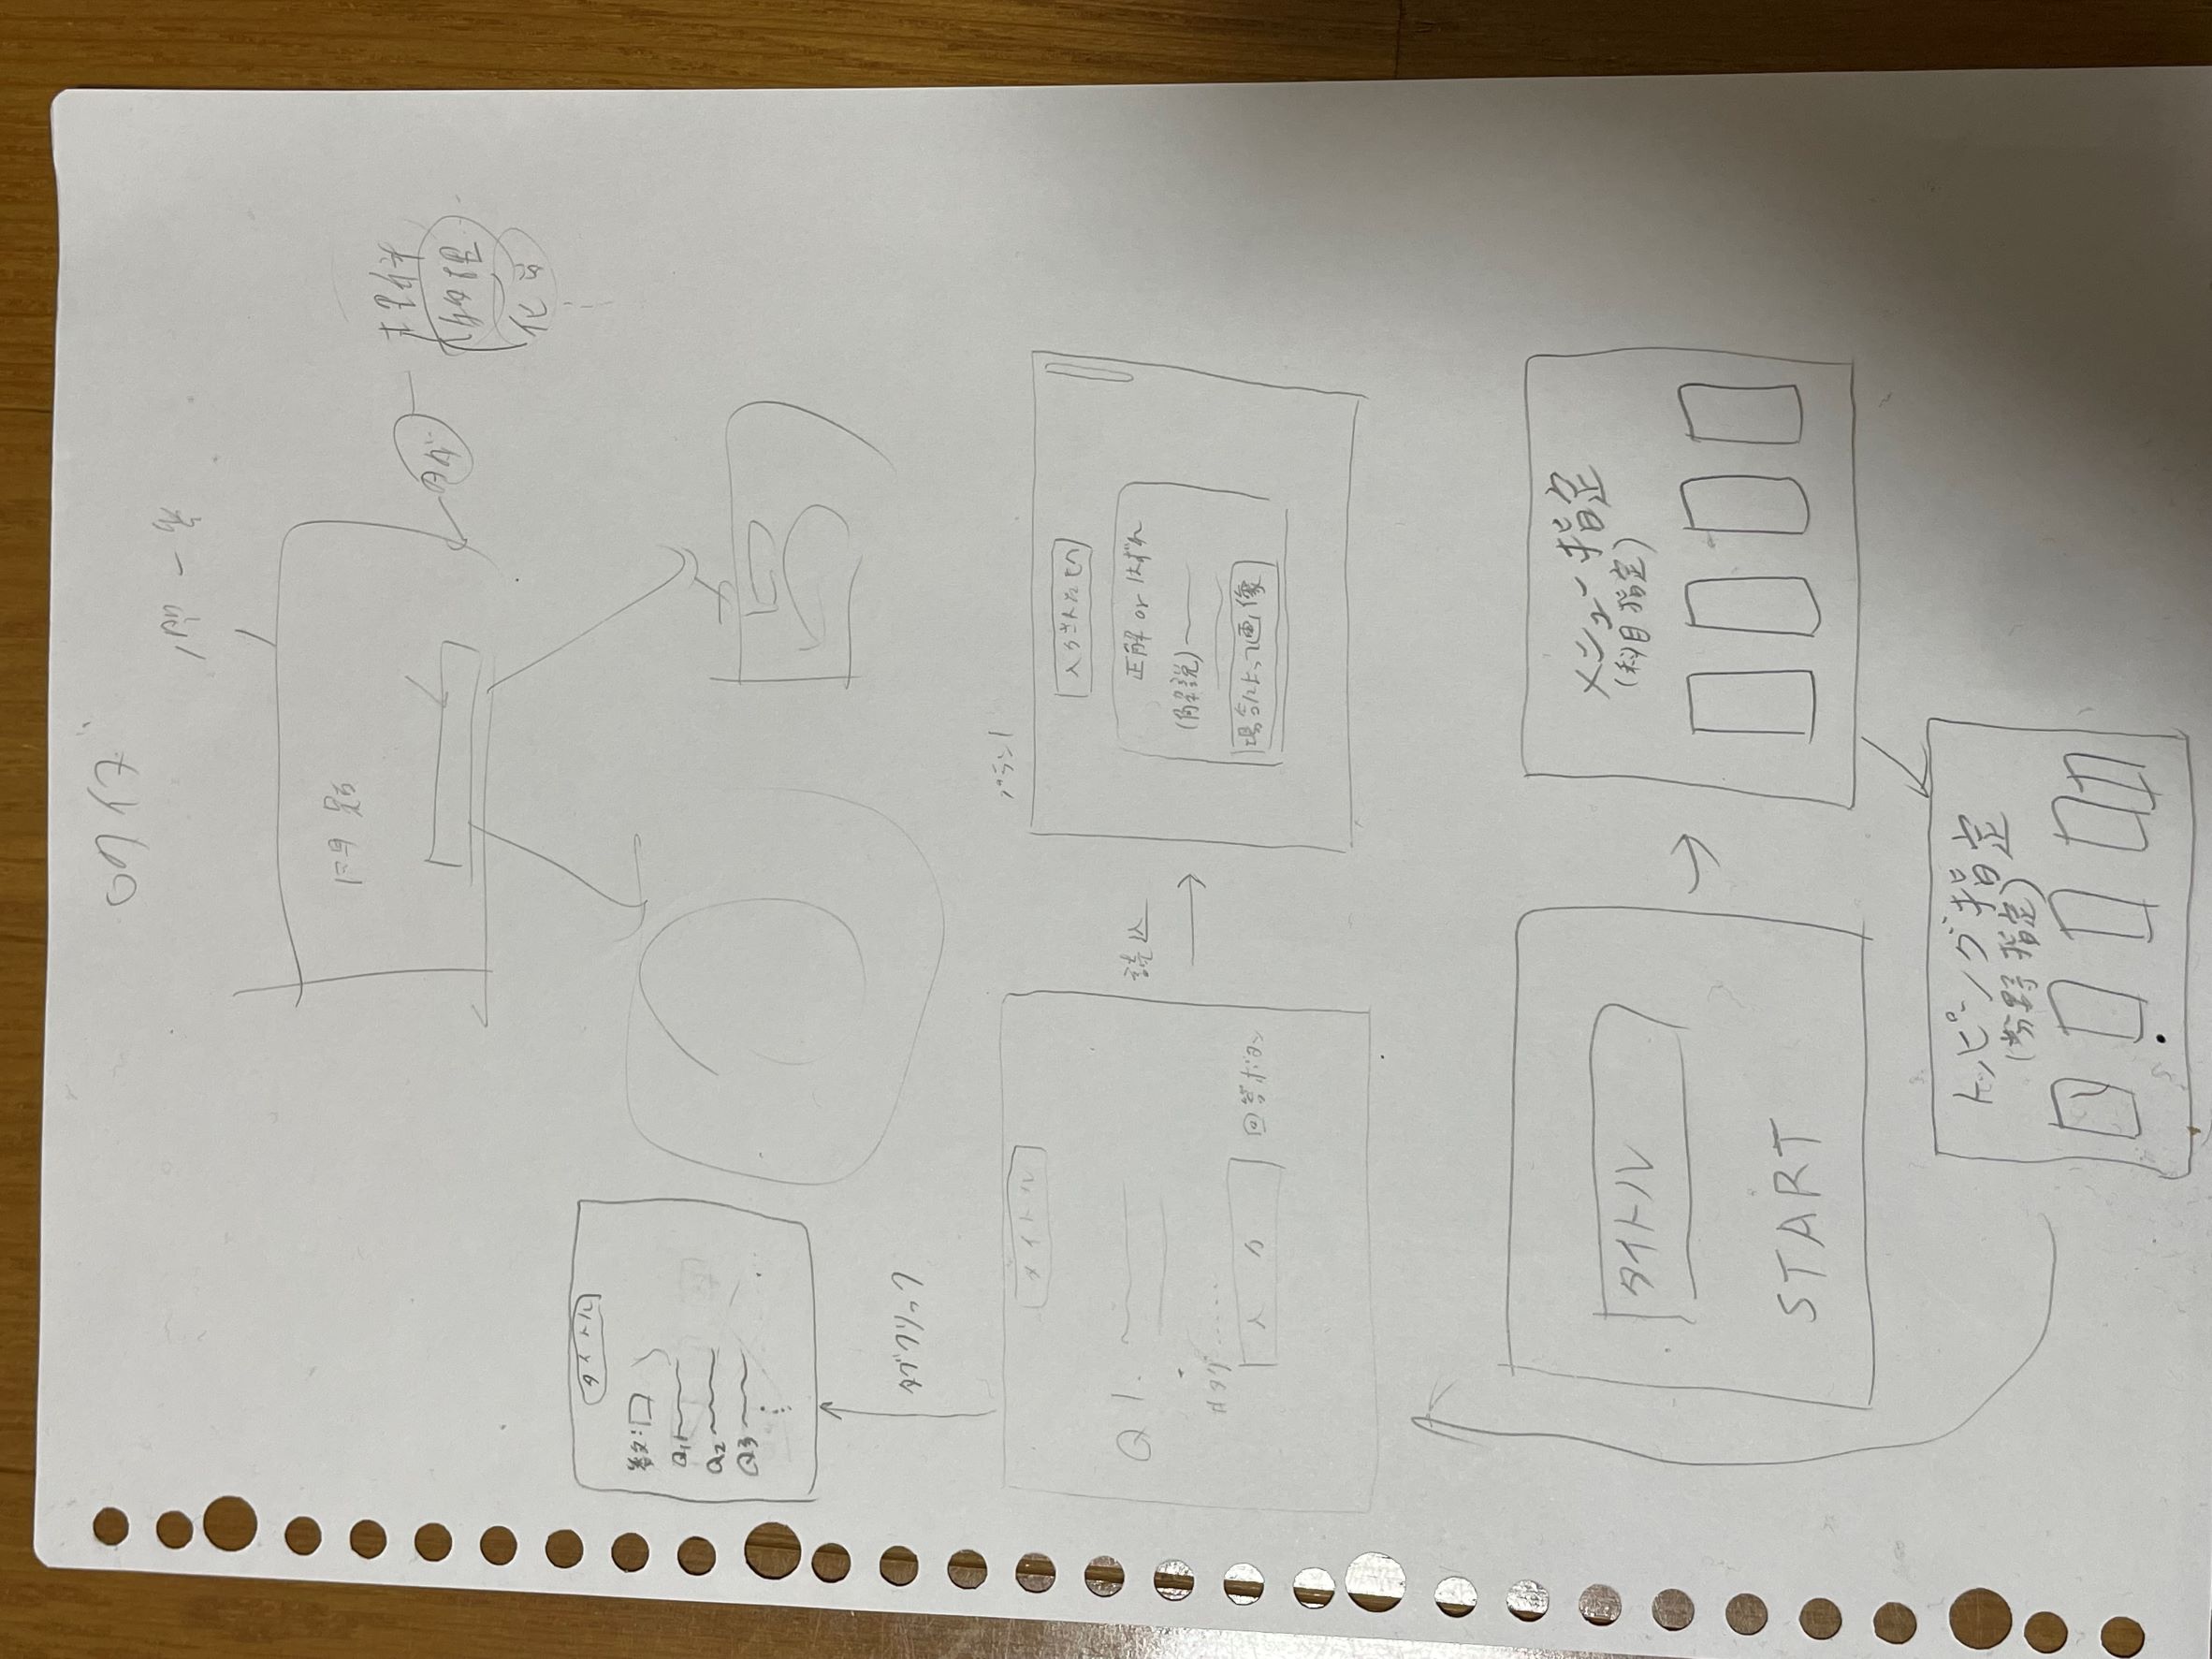 クイズ
問題
タグ
物理
タイトル
数:
Q1
Q2
Q3
タブクリック
タイトル
Q1.
#タグ.....
入力
回答ボタン
読込
プラン1
入力されたもの
正解 or はずれ
(解説)
場合によって画像
タイトル
START
メニュー指定
(科目指定)
トッピング指定
(分野指定)